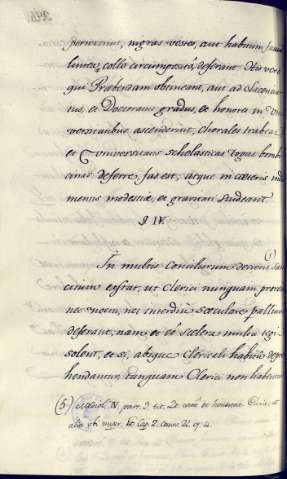 pertinent, nigras vestes, aut habitum,
linteo, collo circumposito, deferant. His vero
qui Præbendam obtineant, aut ad Licencia
tus, et Doctoratus gradus, et honores in Uni
versitatibus ascenderint, chorales trabeas
et Universitatis scholasticas togas bomby
cinas deferre, fas est; atque in cæteris indu
mentis modestiæ, et gravitati studeant.
§ IV.
In multis Conciliorum decretis san
citum extat, ut Clerici nunquam
nec noctu, nec interdiu sæculare pallium
deferant, nam et eo scelera multa tegi
solent, et si, absque Clericali habitu depre
hendantur, tanquam Clerici non
(5) Mediol. IV. part. 3. tit. De vita et honestate Cleric. et